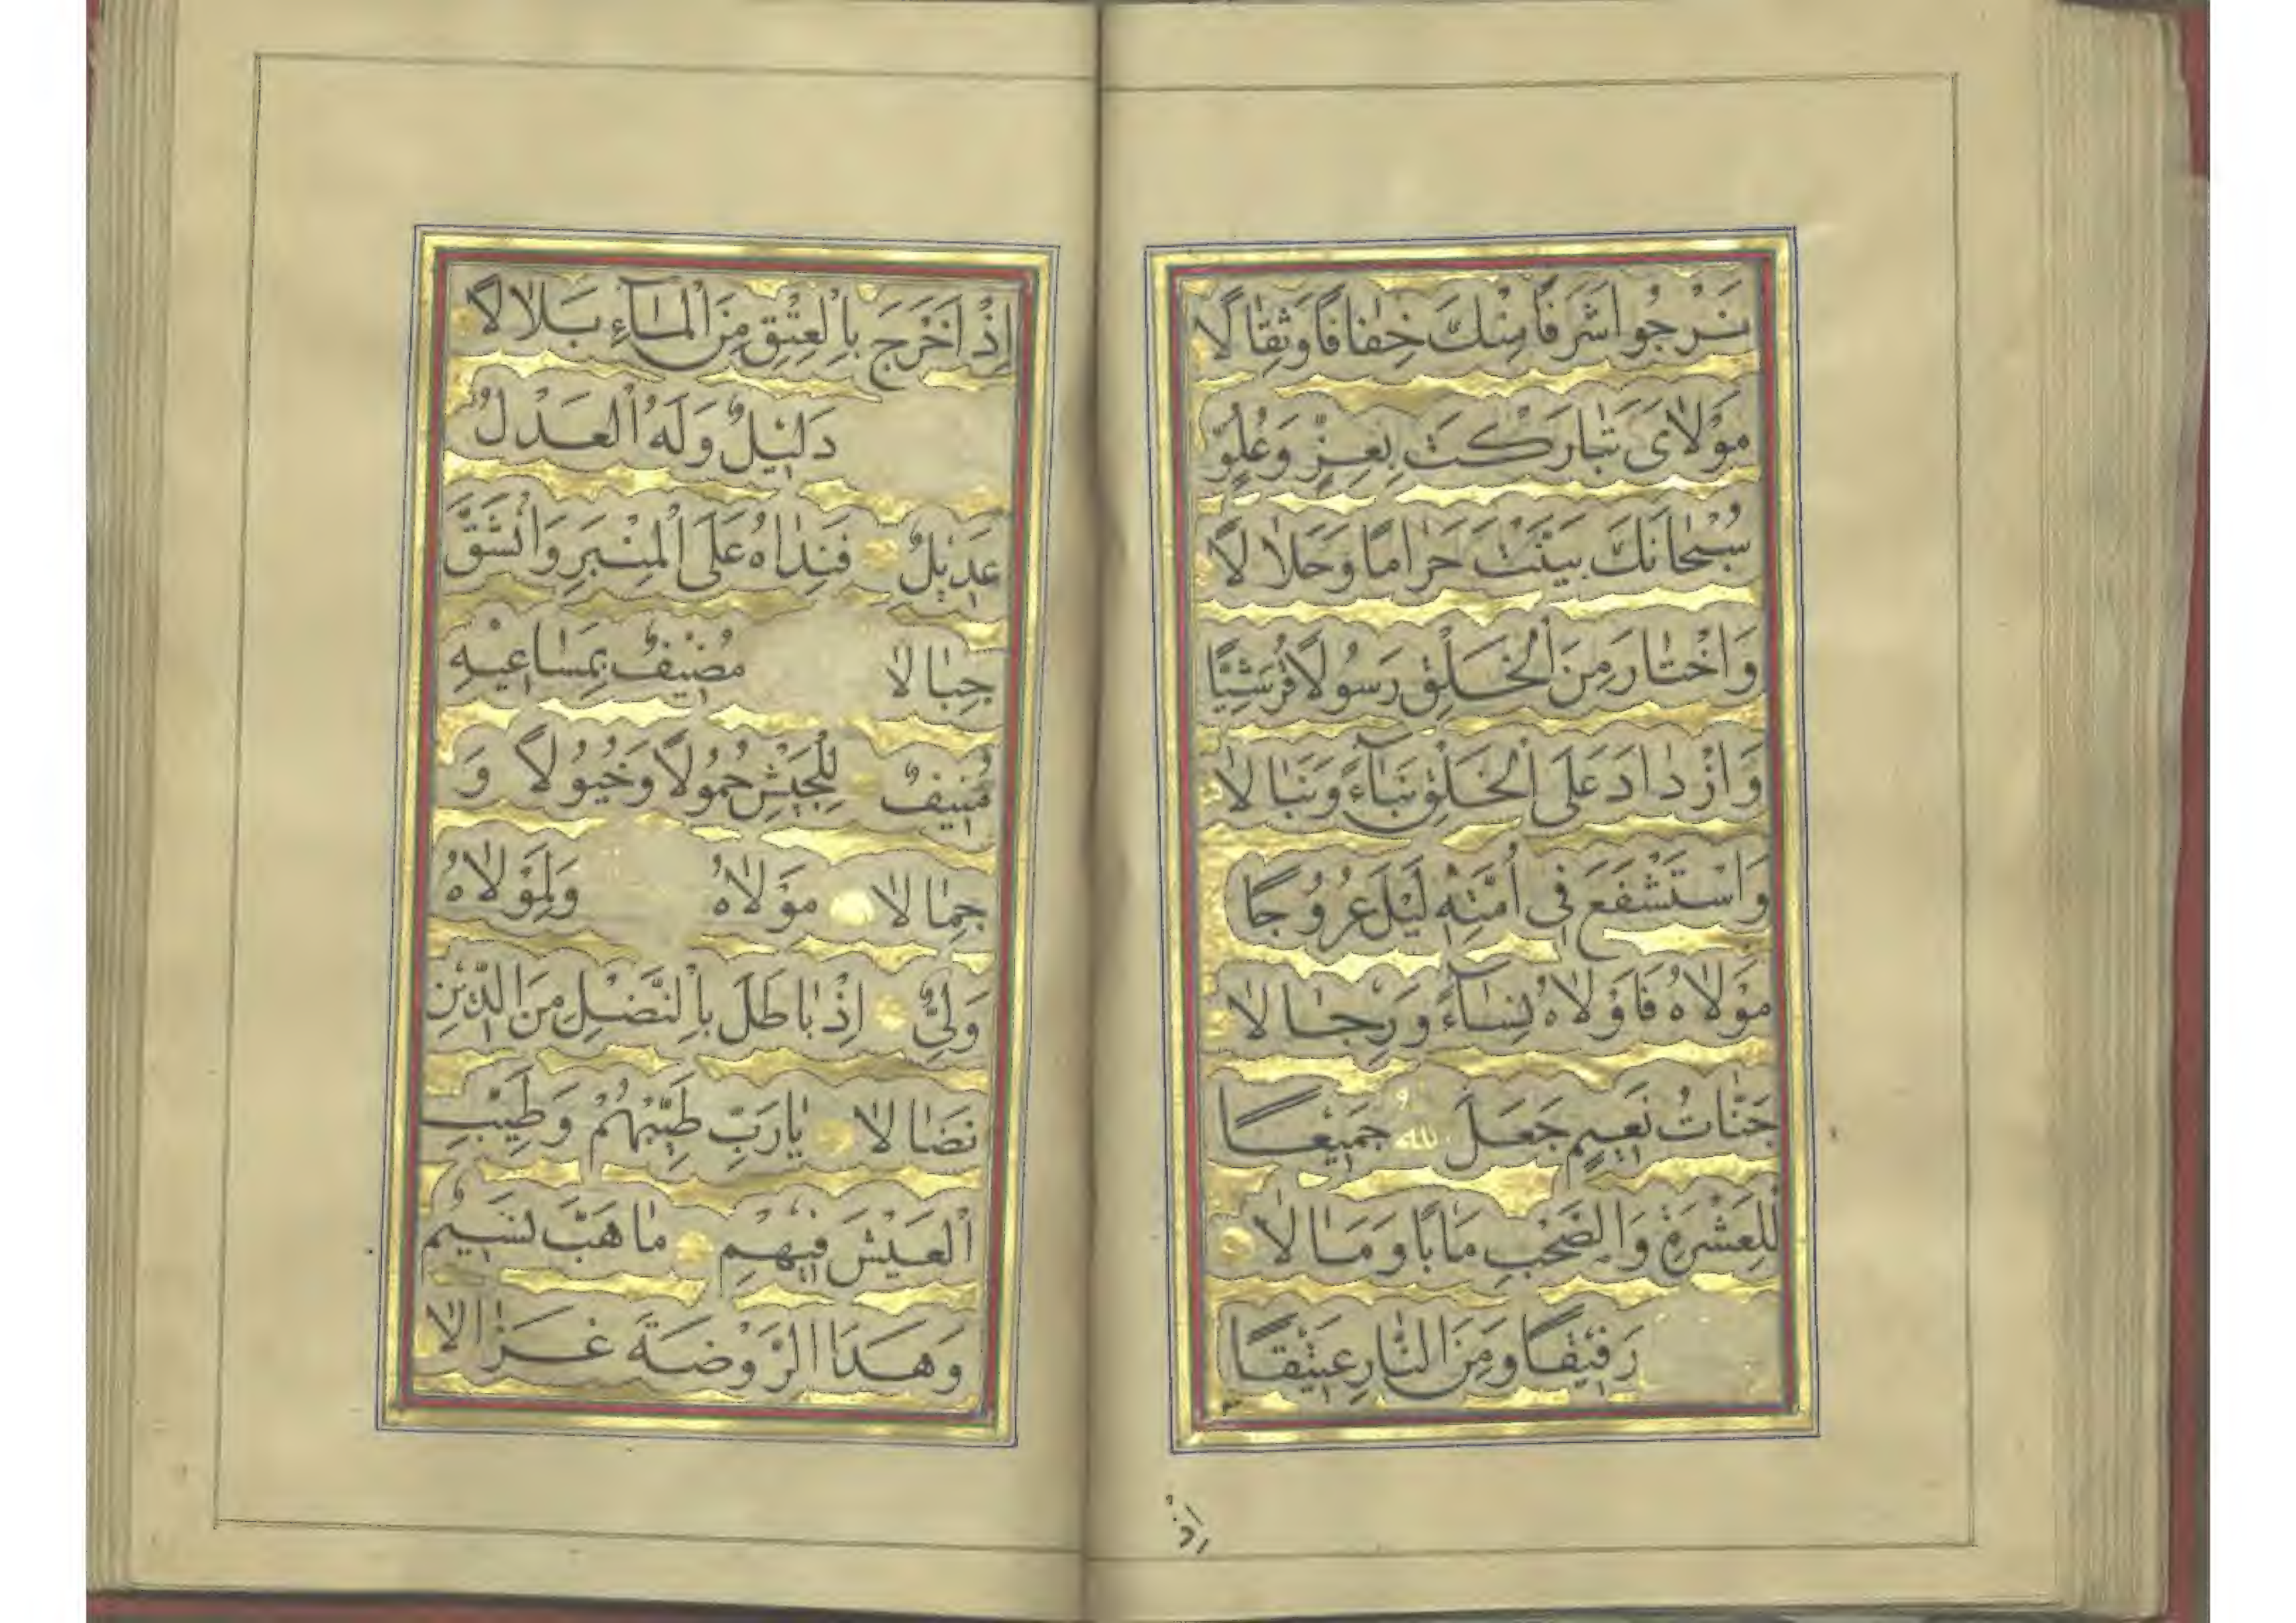 نَرْجُوا شَرَفًا مِنْكَ خِفٰافًا وَثِقٰالًا
مَوْلٰایَ تَبٰارَكْتَ بِعِزٍّ وَعُلُوٍّ
سُبْحٰانَكَ بَيَّنْتَ حَرٰامًا وَحَلٰالًا
وَاخْتٰارَ مِنَ الْخَلْقِ رَسُولًا قُرَشِيًّا
وَازْدٰادَ عَلَى الْخَلْقِ بَهٰآءً وَنَبٰالًا
وَاسْتَشْفَعَ فِى اُمَّتِهٖ لَيْلَ عُرُوجًا
مَوْلٰاهُ فَاَوْلٰاهُ نِسٰآءً وَرِجٰالًا
جَنّٰاتُ نَعِيمٍ جَعَلَ اللهُ جَمِيعًا
لِلْعَشْرَةِ وَالصَّحْبِ مَاٰبًا وَمَاٰلًا
رَفِيقًا وَمِنَ النّٰارِ عَتِيقًا
اِذْ
اِذْ اَخْرَجَ بِالْعِتْقِ مِنَ الْمٰآءِ بَلٰالًا
دَلِيلٌ وَلَهُ الْعَدْلُ
عَدِيلٌ فَنِدٰاهُ عَلَى الْمِنْبَرِ وَانْشَقَّ
جِبٰالًا مُضِيفٌ بِمَسٰاعِيهِ
مُنِيفٌ لِلْجَيْشِ حُمُولًا وَخُيُولًا وَ
جِمٰالًا مَوْلٰاهُ وَلِمَوْلٰاهُ
وَلِيٌّ اِذْ بٰاطَلَ بِالنَّصْلِ مِنَ الدِّينِ
نَضٰالًا يٰارَبِّ طَيِّبْهُمْ وَطَيِّبِ
الْعَيْشَ فِيهِمْ مٰا هَبَّ نَسِيمٌ
وَهَدَا الرَّوْضَةَ غَزٰالًا